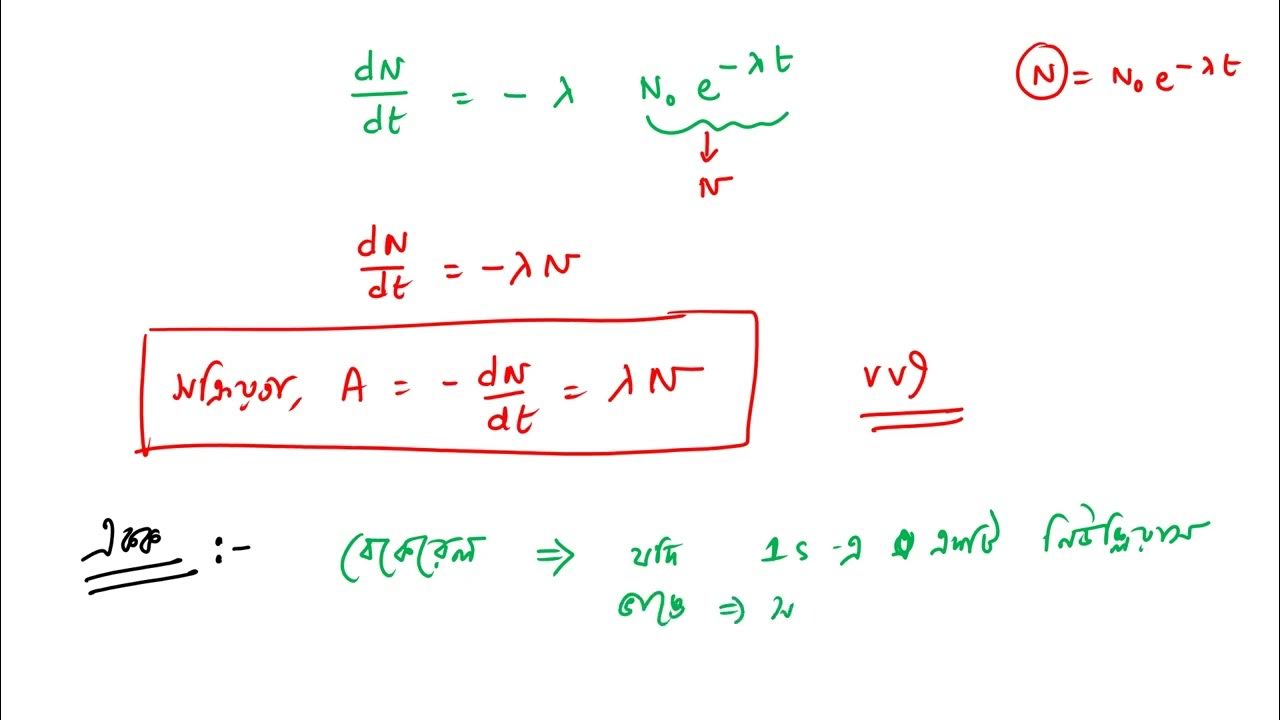 dN/dt = - λ N₀ e^{-λt}
N = N₀ e^{-λt}
↓
N
dN/dt = -λN
সক্রিয়তা, A = - dN/dt = λN
VVI
একক :-
বেকেরেল ⇒ যদি 1s -এ একটি নিউক্লিয়াস
ভাঙে ⇒